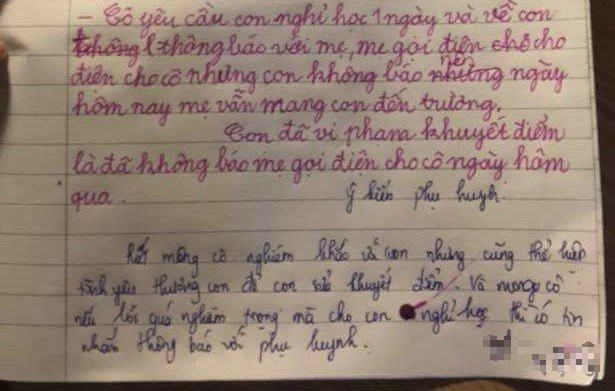 - Cô yêu cầu con nghỉ học 1 ngày và về con
không thông báo với mẹ, mẹ gọi điện chô cho
điện cho cô nhưng con không báo nhưng nên ngày
hôm nay mẹ vẫn mang con đến trường.
Con đã vi phạm khuyết điểm
là đã không báo mẹ gọi điện cho cô ngày hôm
qua.
Ý kiến phụ huynh.
Rất mong cô nghiêm khắc với con nhưng cũng thể hiện
tình yêu thương con để con sửa khuyết điểm. Và mong cô
nếu lỗi quá nghiêm trọng mà cho con nghỉ học thì có tin
nhắn thông báo với phụ huynh.